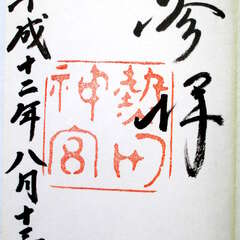 参拝
熱田
神宮
平成十二年八月十三